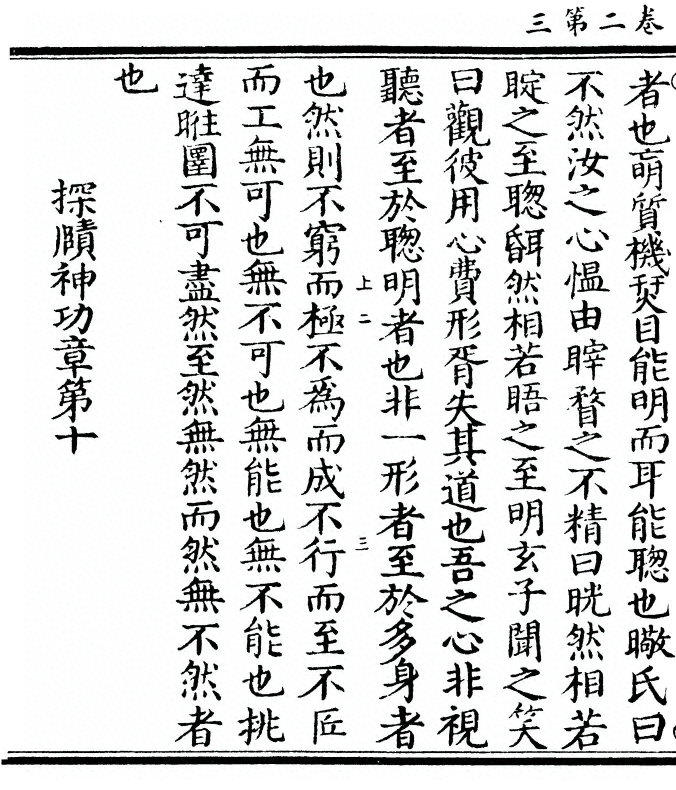 卷二第三
者也萌質機熒目能明而耳能聦也瞮氏曰
不然汝之心愠由睟瞀之不精曰晄然相若
聢之至聦聒然相若晤之至明玄子聞之笑
曰觀彼用心費形胥失其道也吾之心非視
聽者至於聦明者也非一形者至於多身者
上二
三
也然則不窮而極不為而成不行而至不匠
而工無可也無不可也無能也無不能也挑
達暀圛不可盡然至然無然而然無不然者
也
探賾神功章第十